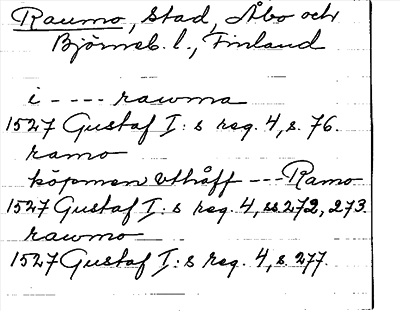 Raumo, stad, Åbo och
Björneb. l., Finland
i - - - - rawma
1527 Gustaf I:s reg. 4, s. 76.
ramo
köpmen vthåff - - - Ramo
1527 Gustaf I:s reg. 4, ss 272, 273.
rawmo
1527 Gustaf I:s reg. 4, s. 277.